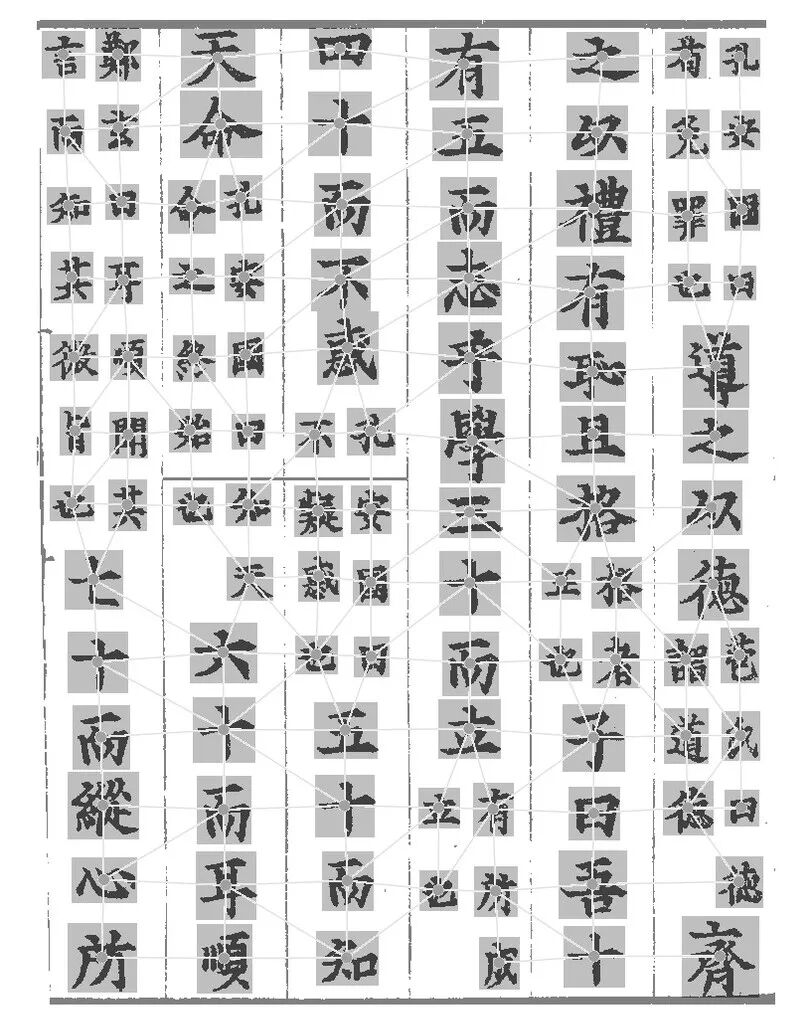 孔安國曰苟免罪也導之以德苞氏曰德謂道德齊
之以禮有恥且格格者正也子曰吾十
有五而志乎學三十而立有所成立也
四十而不惑孔安國曰不疑惑也五十而知
天命孔安國曰知天命之終始也六十而耳順
鄭玄曰耳順聞其言而知其微旨也七十而縱心所